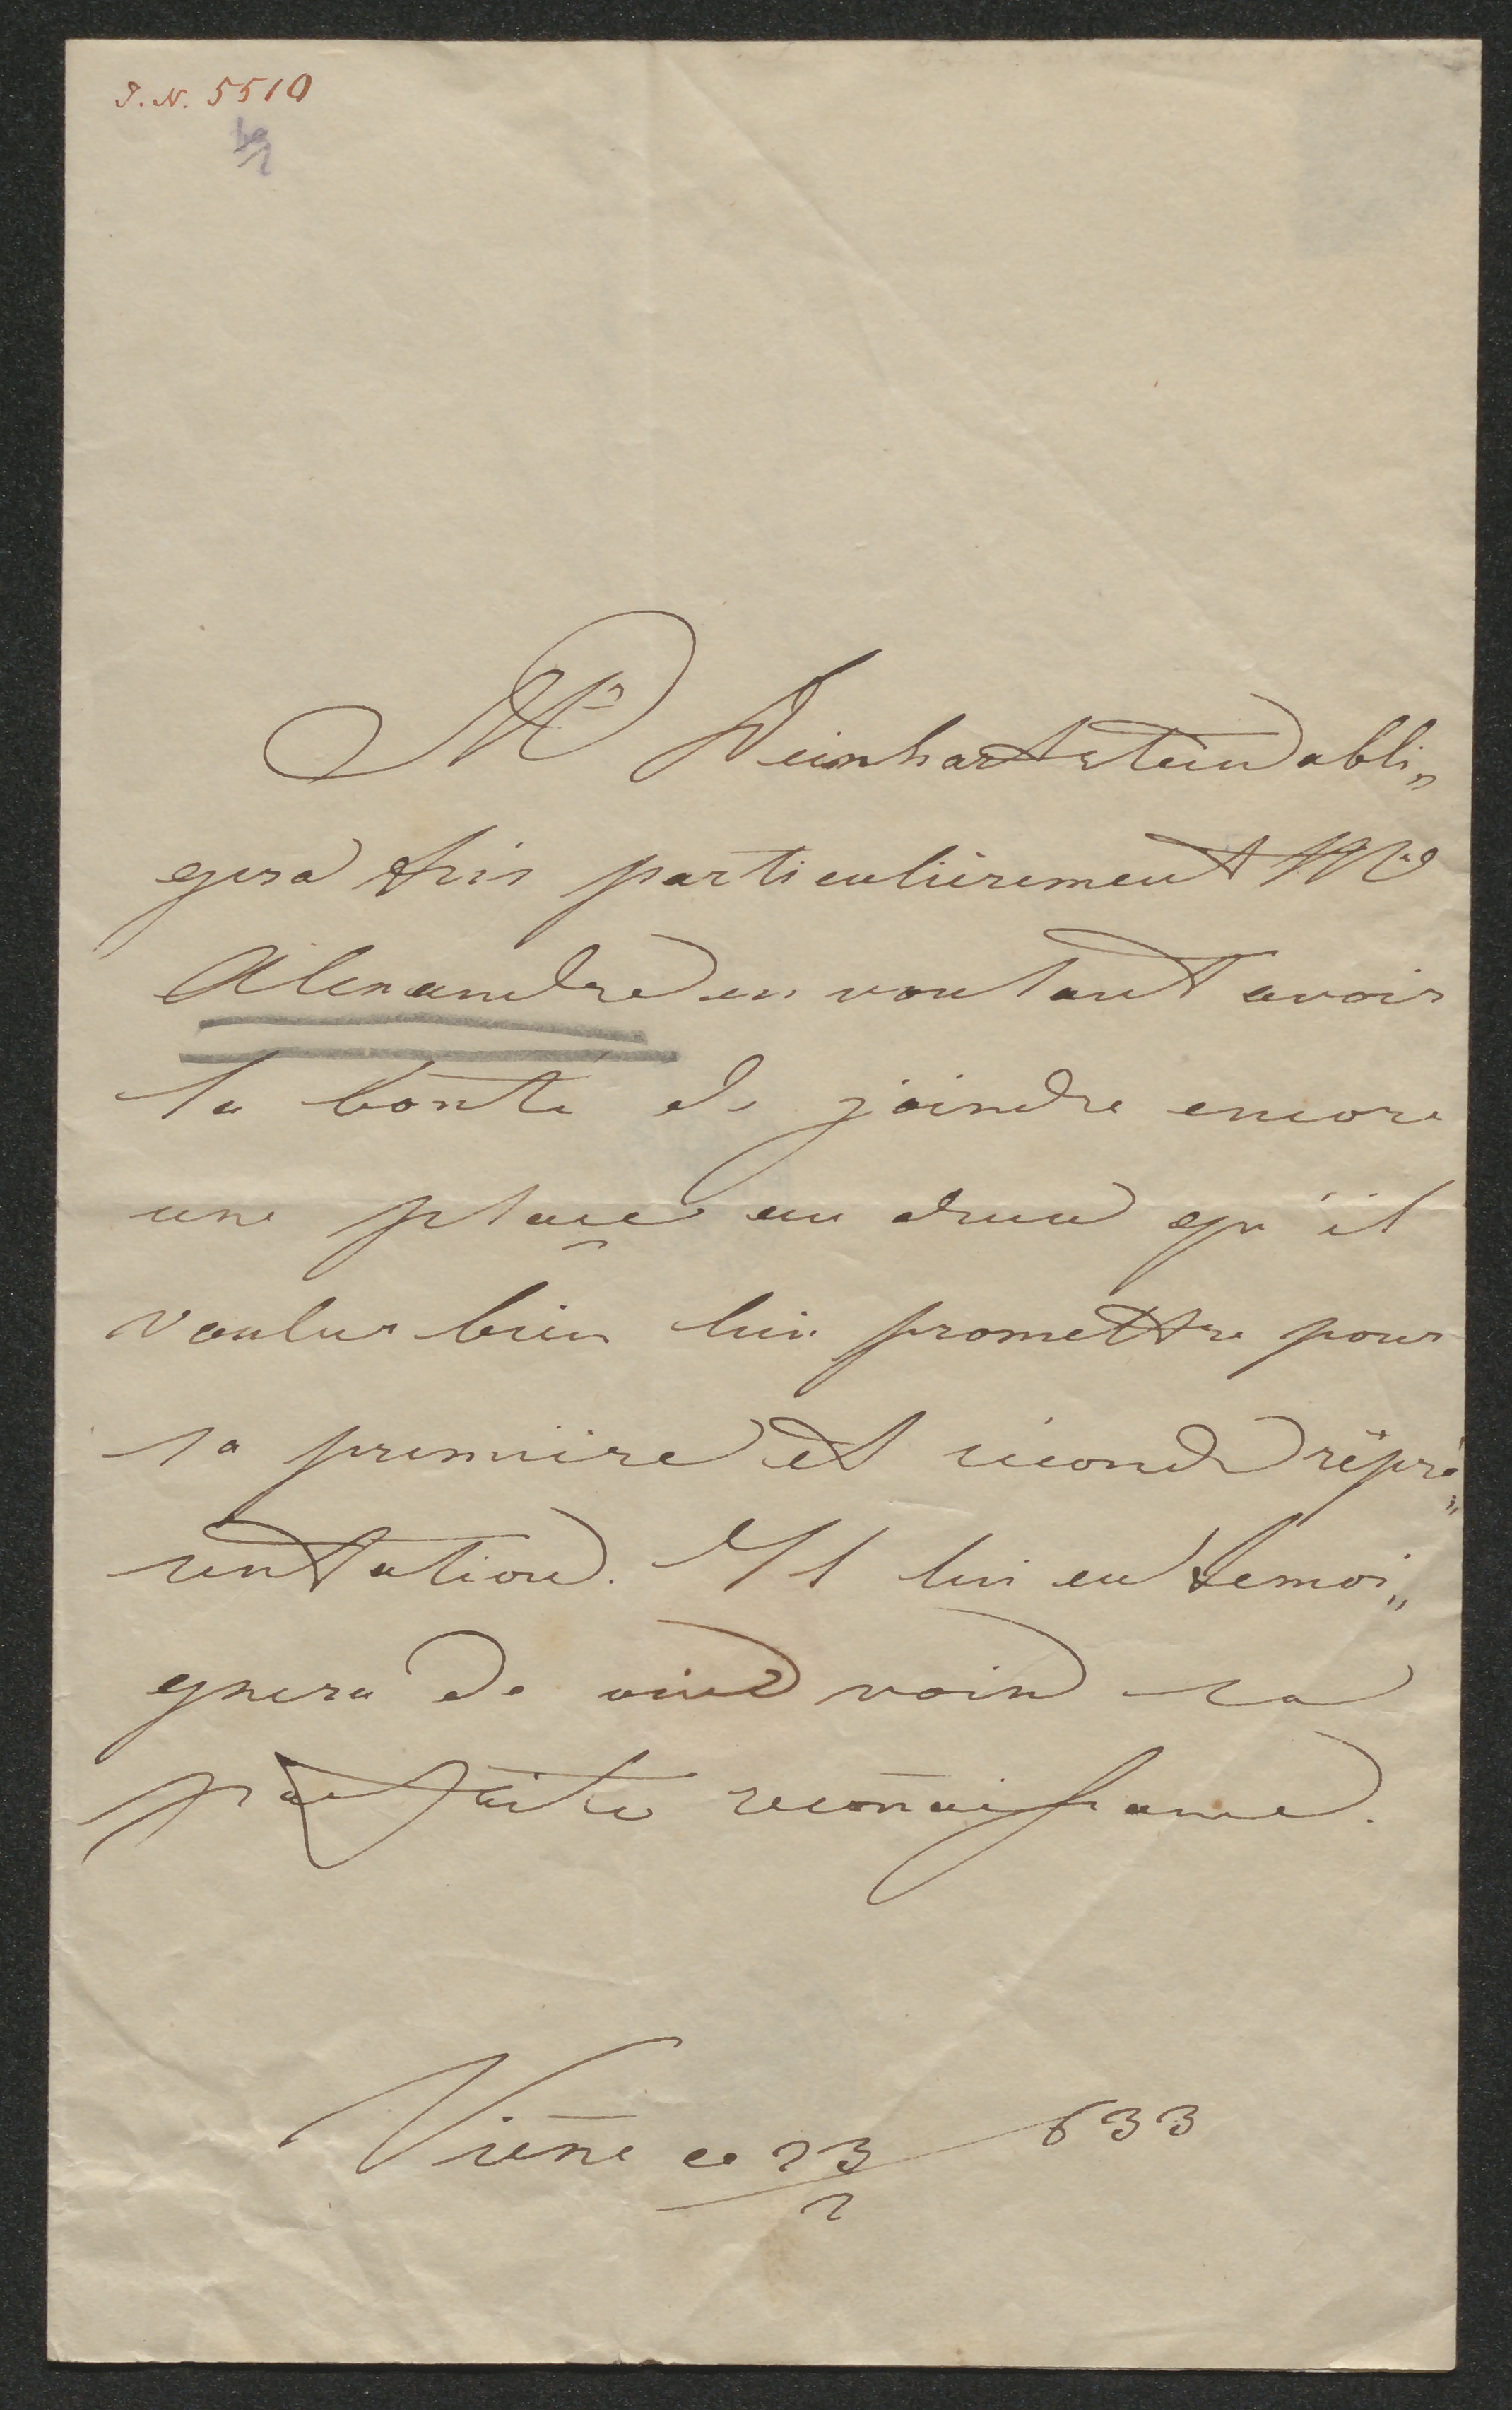 I. N. 5510
Mr Deinhartstein obli„
gera très particulièrement Mr
Alexandre en voulant avoir
la bonté de joindre encore
une place au deux qu'il
voulut bien lui promettre pour
sa première et seconde répré„
sentation. Il lui en temoi„
gnera de vive voix sa
parfaite recon̄aissance.
Vien̄e ce 23/2 833